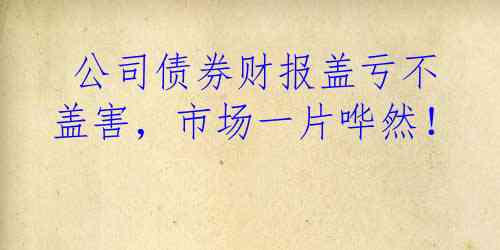 公司债券财报盖亏不
盖害，市场一片哗然！